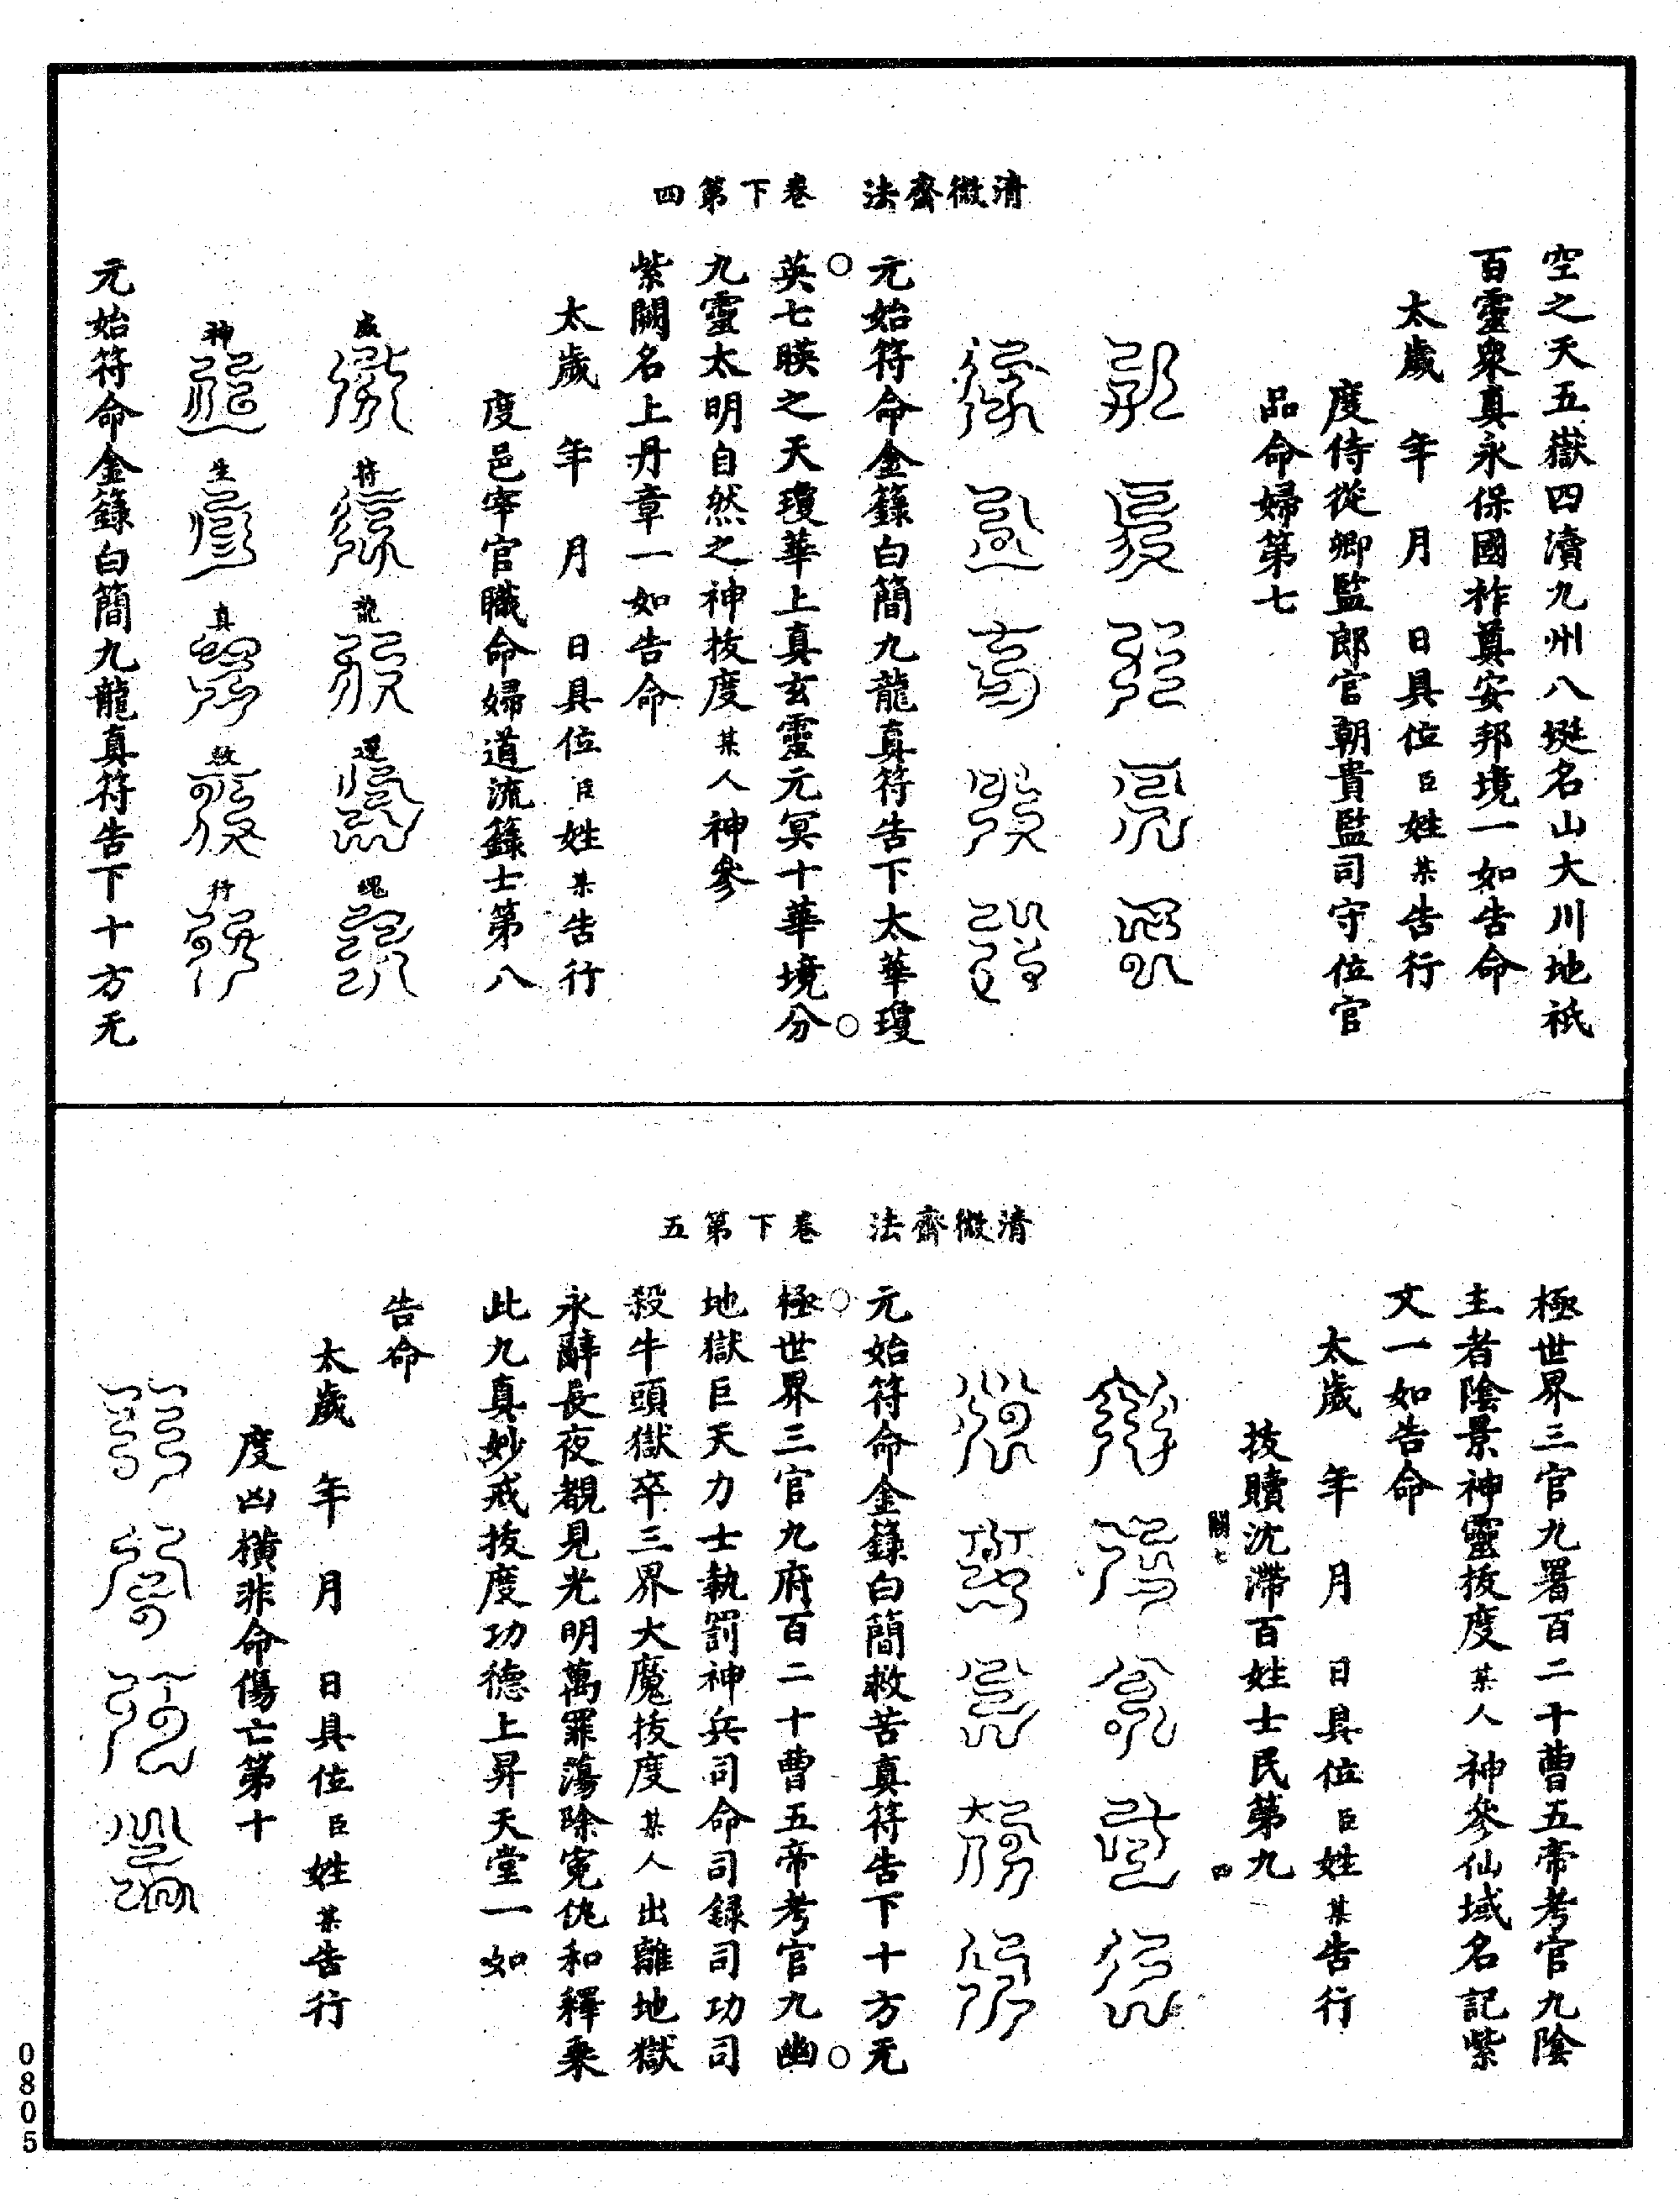 空之天五嶽四瀆九州八埏名山大川地祇
百靈衆真永保國祚奠安邦境一如告命
太歲　年　月　日具位臣姓某告行
度侍從卿監郎官朝貴監司守位官
品命婦第七
清微齋法　卷下第四
元始符命金籙白簡九龍真符告下太華瓊
英七暎之天瓊華上真玄靈元冥十華境分
九靈太明自然之神拔度某人神參
紫闕名上丹章一如告命
太歲　年　月　日具位臣姓某告行
度邑宰官職命婦道流籙士第八
威　符　龍　還　魂
神　生　真　敕　行
元始符命金籙白簡九龍真符告下十方无
極世界三官九署百二十曹五帝考官九陰
主者陰景神靈拔度某人神參仙域名記紫
文一如告命
太歲　年　月　日具位臣姓某告行
拔贖沈滯百姓士民第九
關七　四
清微齋法　卷下第五
元始符命金籙白簡救苦真符告下十方无
極世界三官九府百二十曹五帝考官九幽
地獄巨天力士執罰神兵司命司錄司功司
殺牛頭獄卒三界大魔拔度某人出離地獄
永辭長夜覩見光明萬罪蕩除冤仇和釋乘
此九真妙戒拔度功德上昇天堂一如
告命
太歲　年　月　日具位臣姓某告行
度凶橫非命傷亡第十
0805